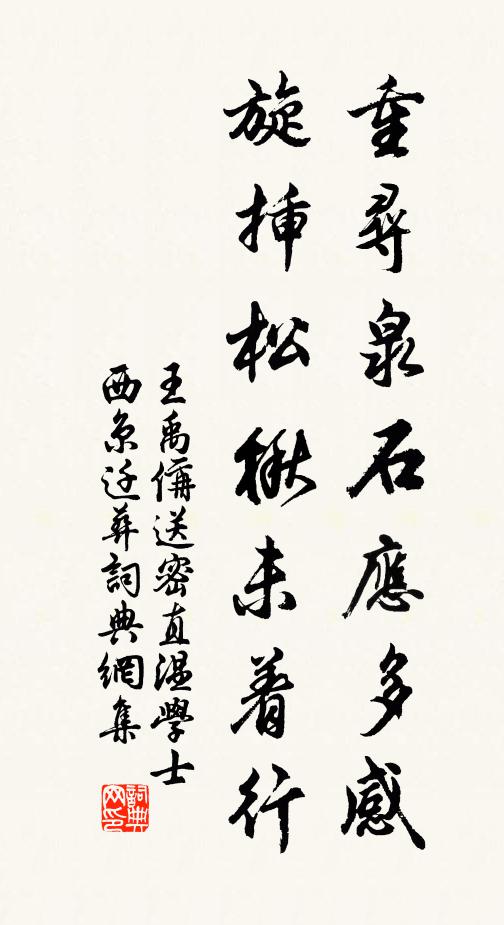 重尋泉石應多感
旋插松楸未着行
王禹偁送密直溫學士
西京迁葬詞典網集
詞典網印